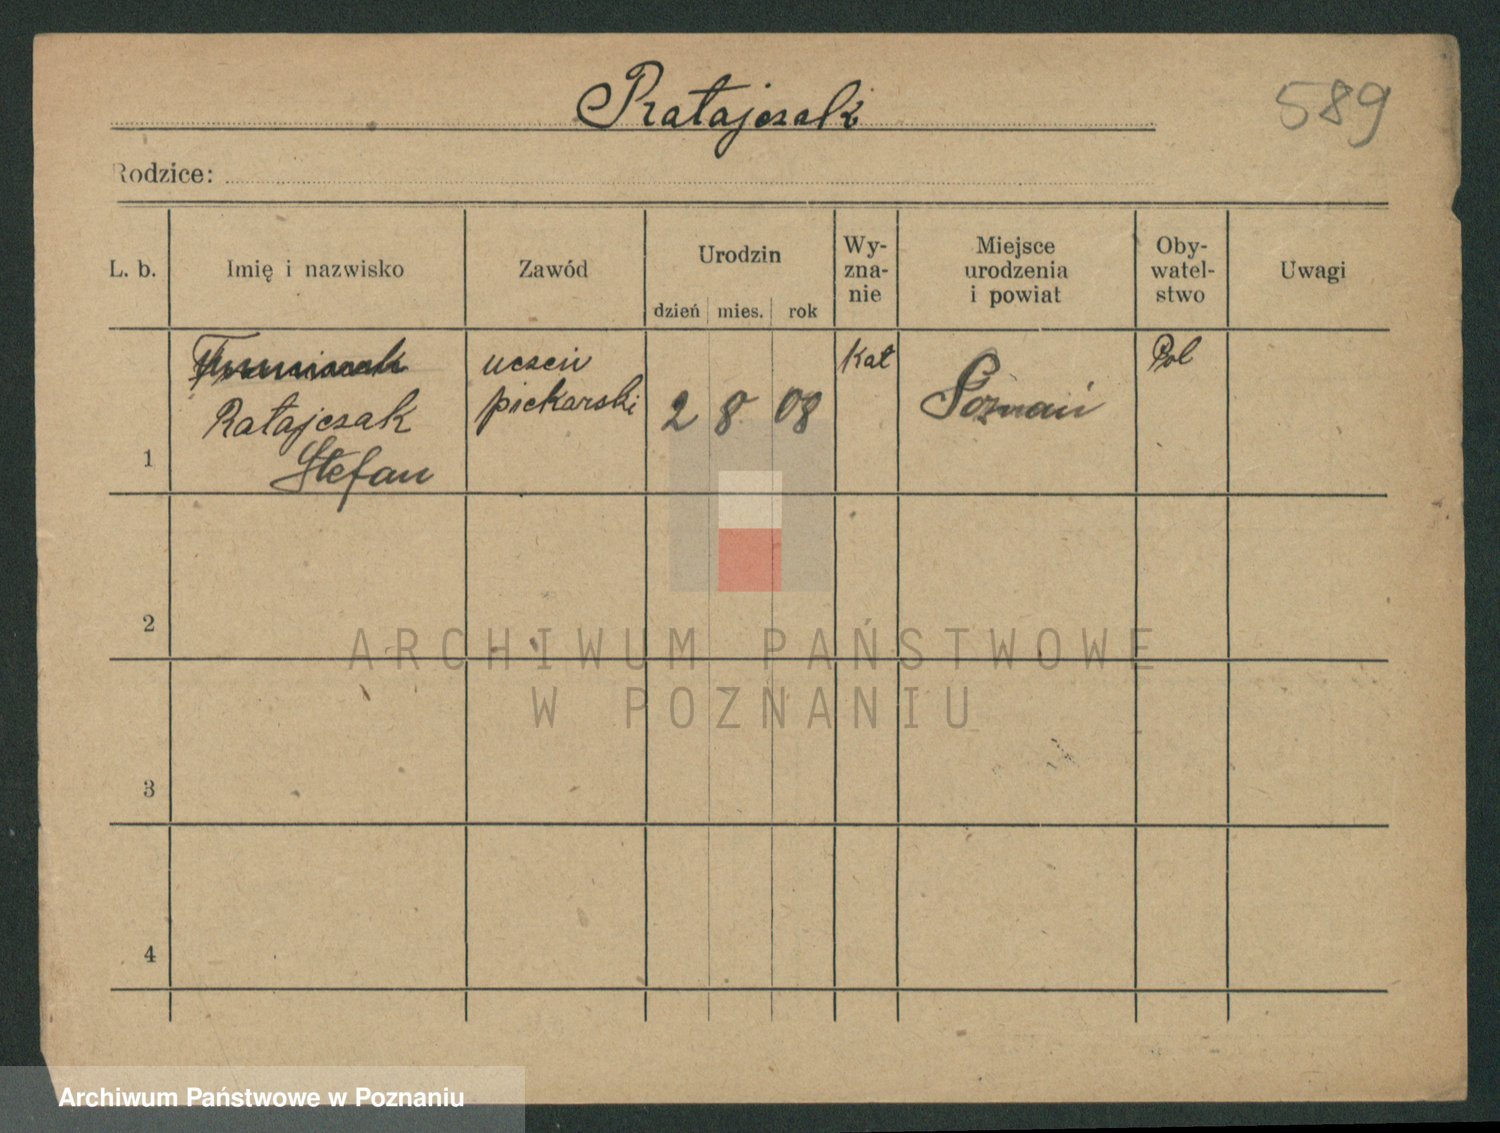 Ratajczak
589
Rodzice:
L. b.
Imię i nazwisko
Zawód
Urodzin
dzień mies. rok
Wy-
zna-
nie
Miejsce
urodzenia
i powiat
Oby-
watel-
stwo
Uwagi
1
Ratajczak
Stefan
uczeń
piekarski
2 8 08
Kat
Poznań
Pol
2
3
4
ARCHIWUM PAŃSTWOWE
W POZNANIU
Archiwum Państwowe w Poznaniu